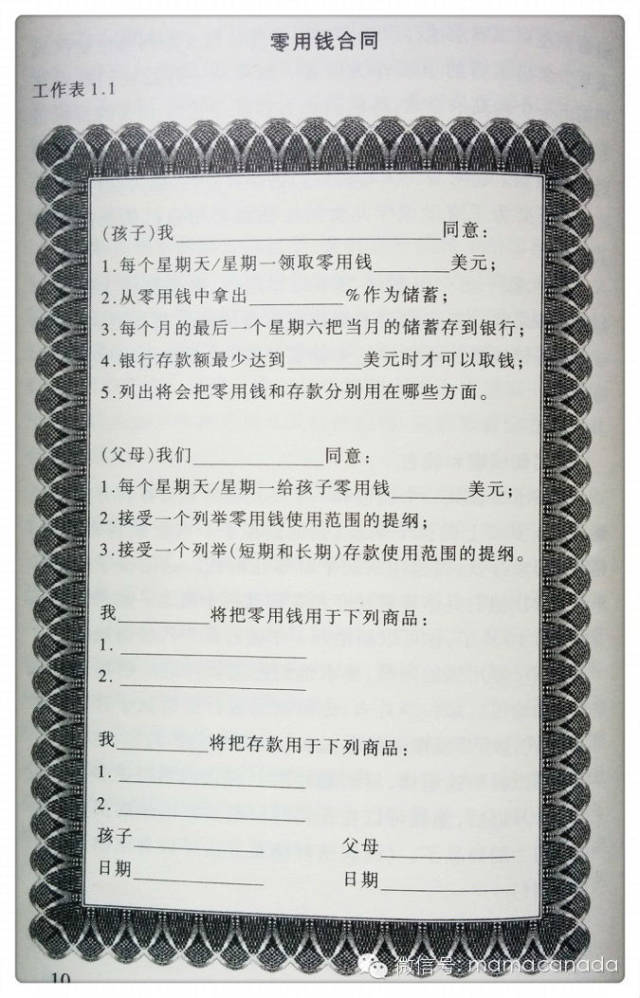 零用钱合同
工作表1.1
(孩子)我____________________同意:
1.每个星期天/星期一领取零用钱________美元;
2.从零用钱中拿出__________%作为储蓄;
3.每个月的最后一个星期六把当月的储蓄存到银行;
4.银行存款额最少达到________美元时才可以取钱;
5.列出将会把零用钱和存款分别用在哪些方面。
(父母)我们______________同意:
1.每个星期天/星期一给孩子零用钱________美元;
2.接受一个列举零用钱使用范围的提纲;
3.接受一个列举(短期和长期)存款使用范围的提纲。
我__________将把零用钱用于下列商品:
1.____________________
2.____________________
我__________将把存款用于下列商品:
1.____________________
2.____________________
孩子______________ 父母______________
日期______________ 日期______________
10
微信号: mamacanada